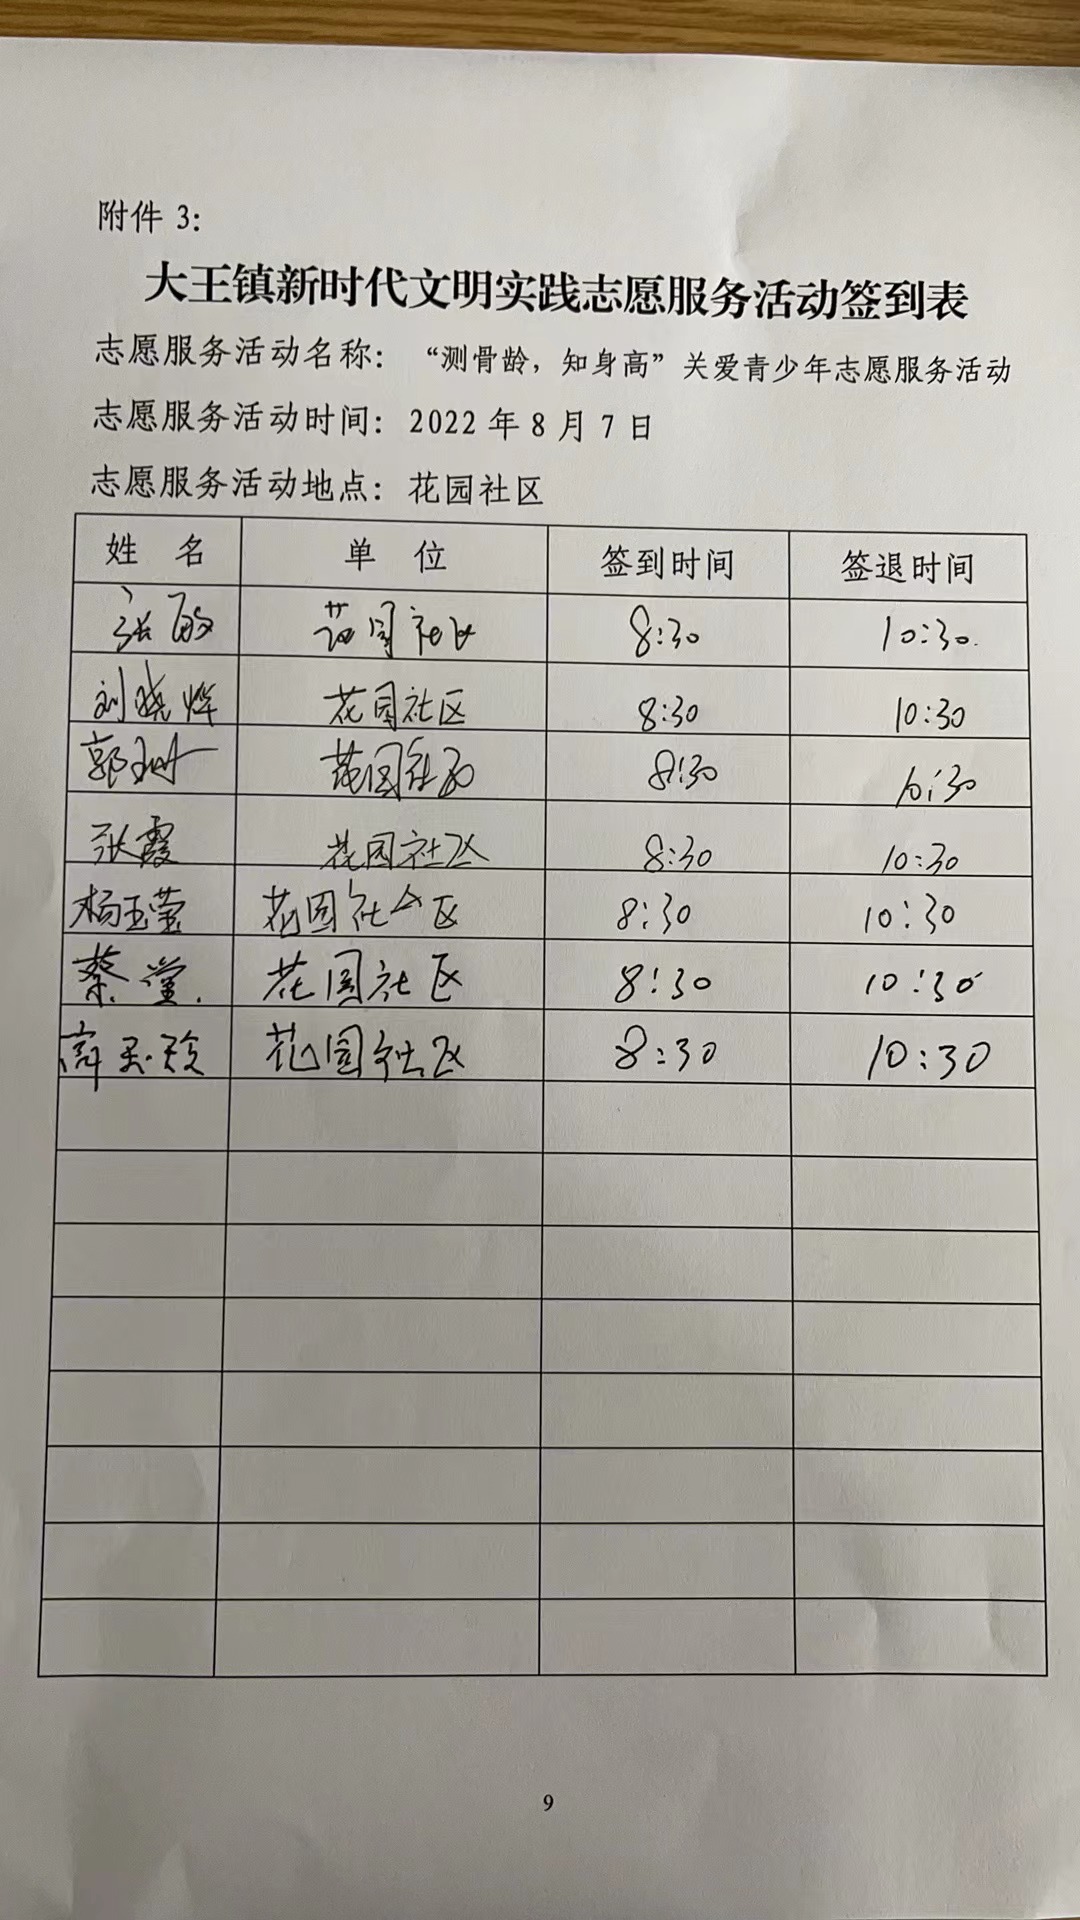 附件 3:
大王镇新时代文明实践志愿服务活动签到表
志愿服务活动名称：“测骨龄，知身高”关爱青少年志愿服务活动
志愿服务活动时间：2022 年 8 月 7 日
志愿服务活动地点：花园社区
姓 名 单 位 签到时间 签退时间
张敏 花园社区 8:30 10:30.
刘晓烨 花园社区 8:30 10:30
郭 花园社区 8:30 10:30
张霞 花园社区 8:30 10:30
杨玉莹 花园社区 8:30 10:30
蔡莹 花园社区 8:30 10:30
花园社区 8:30 10:30
9